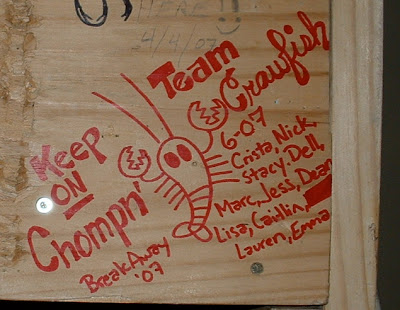 HERE!
4/4/07
Team
Crawfish
6-07
Crista, Nick,
Stacy-Dell,
Marc, Jess, Dean
Lisa, Caitlin,
Lauren, Emma
Keep
ON
Chompn'
Break Away
'07